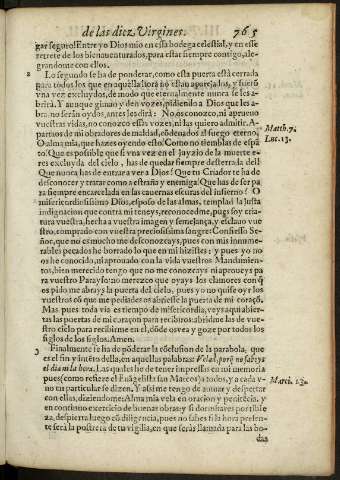 de las diez Virgines. 765
gar seguro! Entre yo Dios mio en essa bodega celestial, y en esse
retrete de los bienauenturados, para estar siempre contigo, ale-
grandome con ellos.
2 Lo segundo se ha de ponderar, como esta puerta està cerrada
para todos los que en aquella hora no estan aparejados, y fueren
vna vez excluydos, de modo que eternalmente nunca se les a-
brirà. Y aunque giman y den vozes, pidiendo a Dios que les a-
bra, no seràn oydos, antes les dirà: No os conozco, ni aprueuo
vuestras vidas, no conozco essas vozes, ni las quiero admitir. A-
partaos de mi obradores de maldad, cõdenados al fuego eterno,
O alma mia, que hazes oyendo esto? Como no tiemblas de espã
to? Que es possible que si vna vez en el juyzio de la muerte e-
res excluyda del cielo, has de quedar siempre desterrada dèl?
Que nunca has de entrar a ver a Dios? Que tu Criador te ha de
desconocer y tratar como a estraña y enemiga? Que has de ser pa
ra siempre encarcelada en las cauernas escuras del infierno? O
misericordiosissimo Dios, esposo de las almas, templad la justa
indignacion que contra mi teneys, reconocedme, pues soy cria
tura vuestra, hecha a vuestra imagen y semejança, y esclauo vue
stro, comprado con vuestra preciosissima sangre: Confiesso Se-
ñor, que no es mucho me desconozcays, pues con mis innume-
rables pecados he borrado lo que en mi hizistes; y pues yo no
os he conocido, ni aprouado con la vida vuestros Mandamien-
tos, bien merecido tengo que no me conozcays ni aproueys pa
ra vuestro Parayso: no merezco que oyays los clamores con q̃
os pido me abrays la puerta del cielo, pues yo no quise oyr los
vuestros cõ que me pediades os abriesse la puerta de mi coraçõ.
Mas pues toda via es tiempo de misericordia, veys aqui abier-
tas las puertas de mi coraçon para recibiros abridme las de vue-
stro cielo para recibirme en el, cõde os vea y goze por todos los
siglos de los siglos. Amen.
3 Finalmente se ha de põderar la cõclusion de la parabola, que
es el fin y intẽto della, en aquellas palabras: Velad, porq̃ no sabeys
el dia ni la hora. Las quales he de tener impressas en mi memoria
pues (como refiere el Euãgelista san Marcos) a todos, y a cada v-
no en particular se dizen. Y assi me tengo de auiuar y despertar
con ellas, diziendome: Alma mia vela en oracion y penitẽcia, y
en continuo exercicio de buenas obras: y si dormitares por tibie
za, despierta luego cõ diligencia, pues no sabes si la hora presen-
te serà la postrera de tu vigilia, en que seràs llamada para las bo-
das
Matth. 7.
Luc. 13.
Marci. 13.